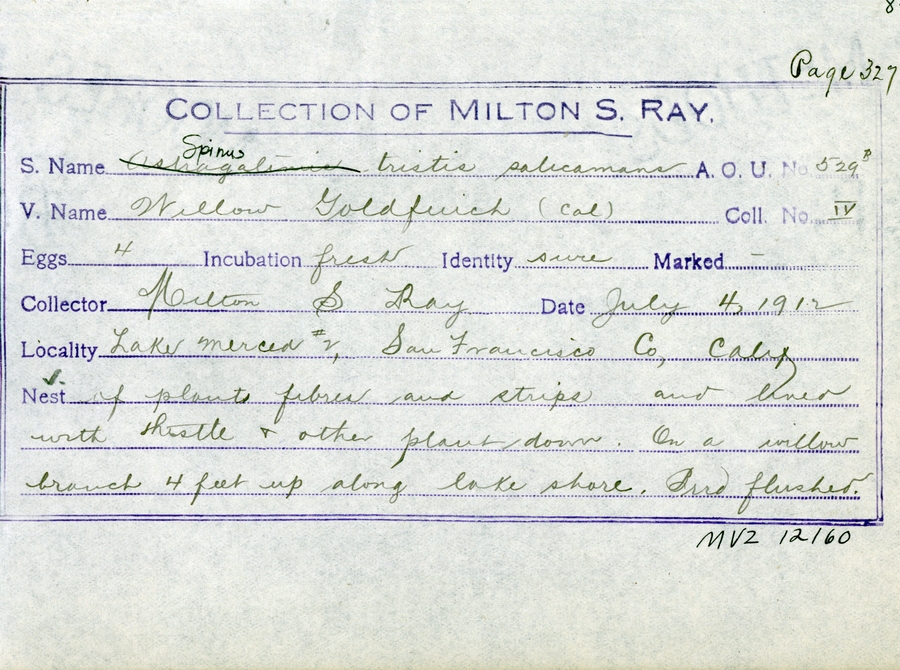 8
Page 327
COLLECTION OF MILTON S. RAY.
Spinus
S. Name Astragalinus tristis salicamans A. O. U. No. 529b
V. Name Willow Goldfinch (Cal) Coll. No. IV
Eggs 4 Incubation fresh Identity sure Marked —
Collector Milton S Ray Date July 4, 1912
Locality Lake Merced #2, San Francisco Co, Calif
Nest of plant fibres and strips and lined
with thistle & other plant down. On a willow
branch 4 feet up along lake shore. Bird flushed.
MVZ 12160